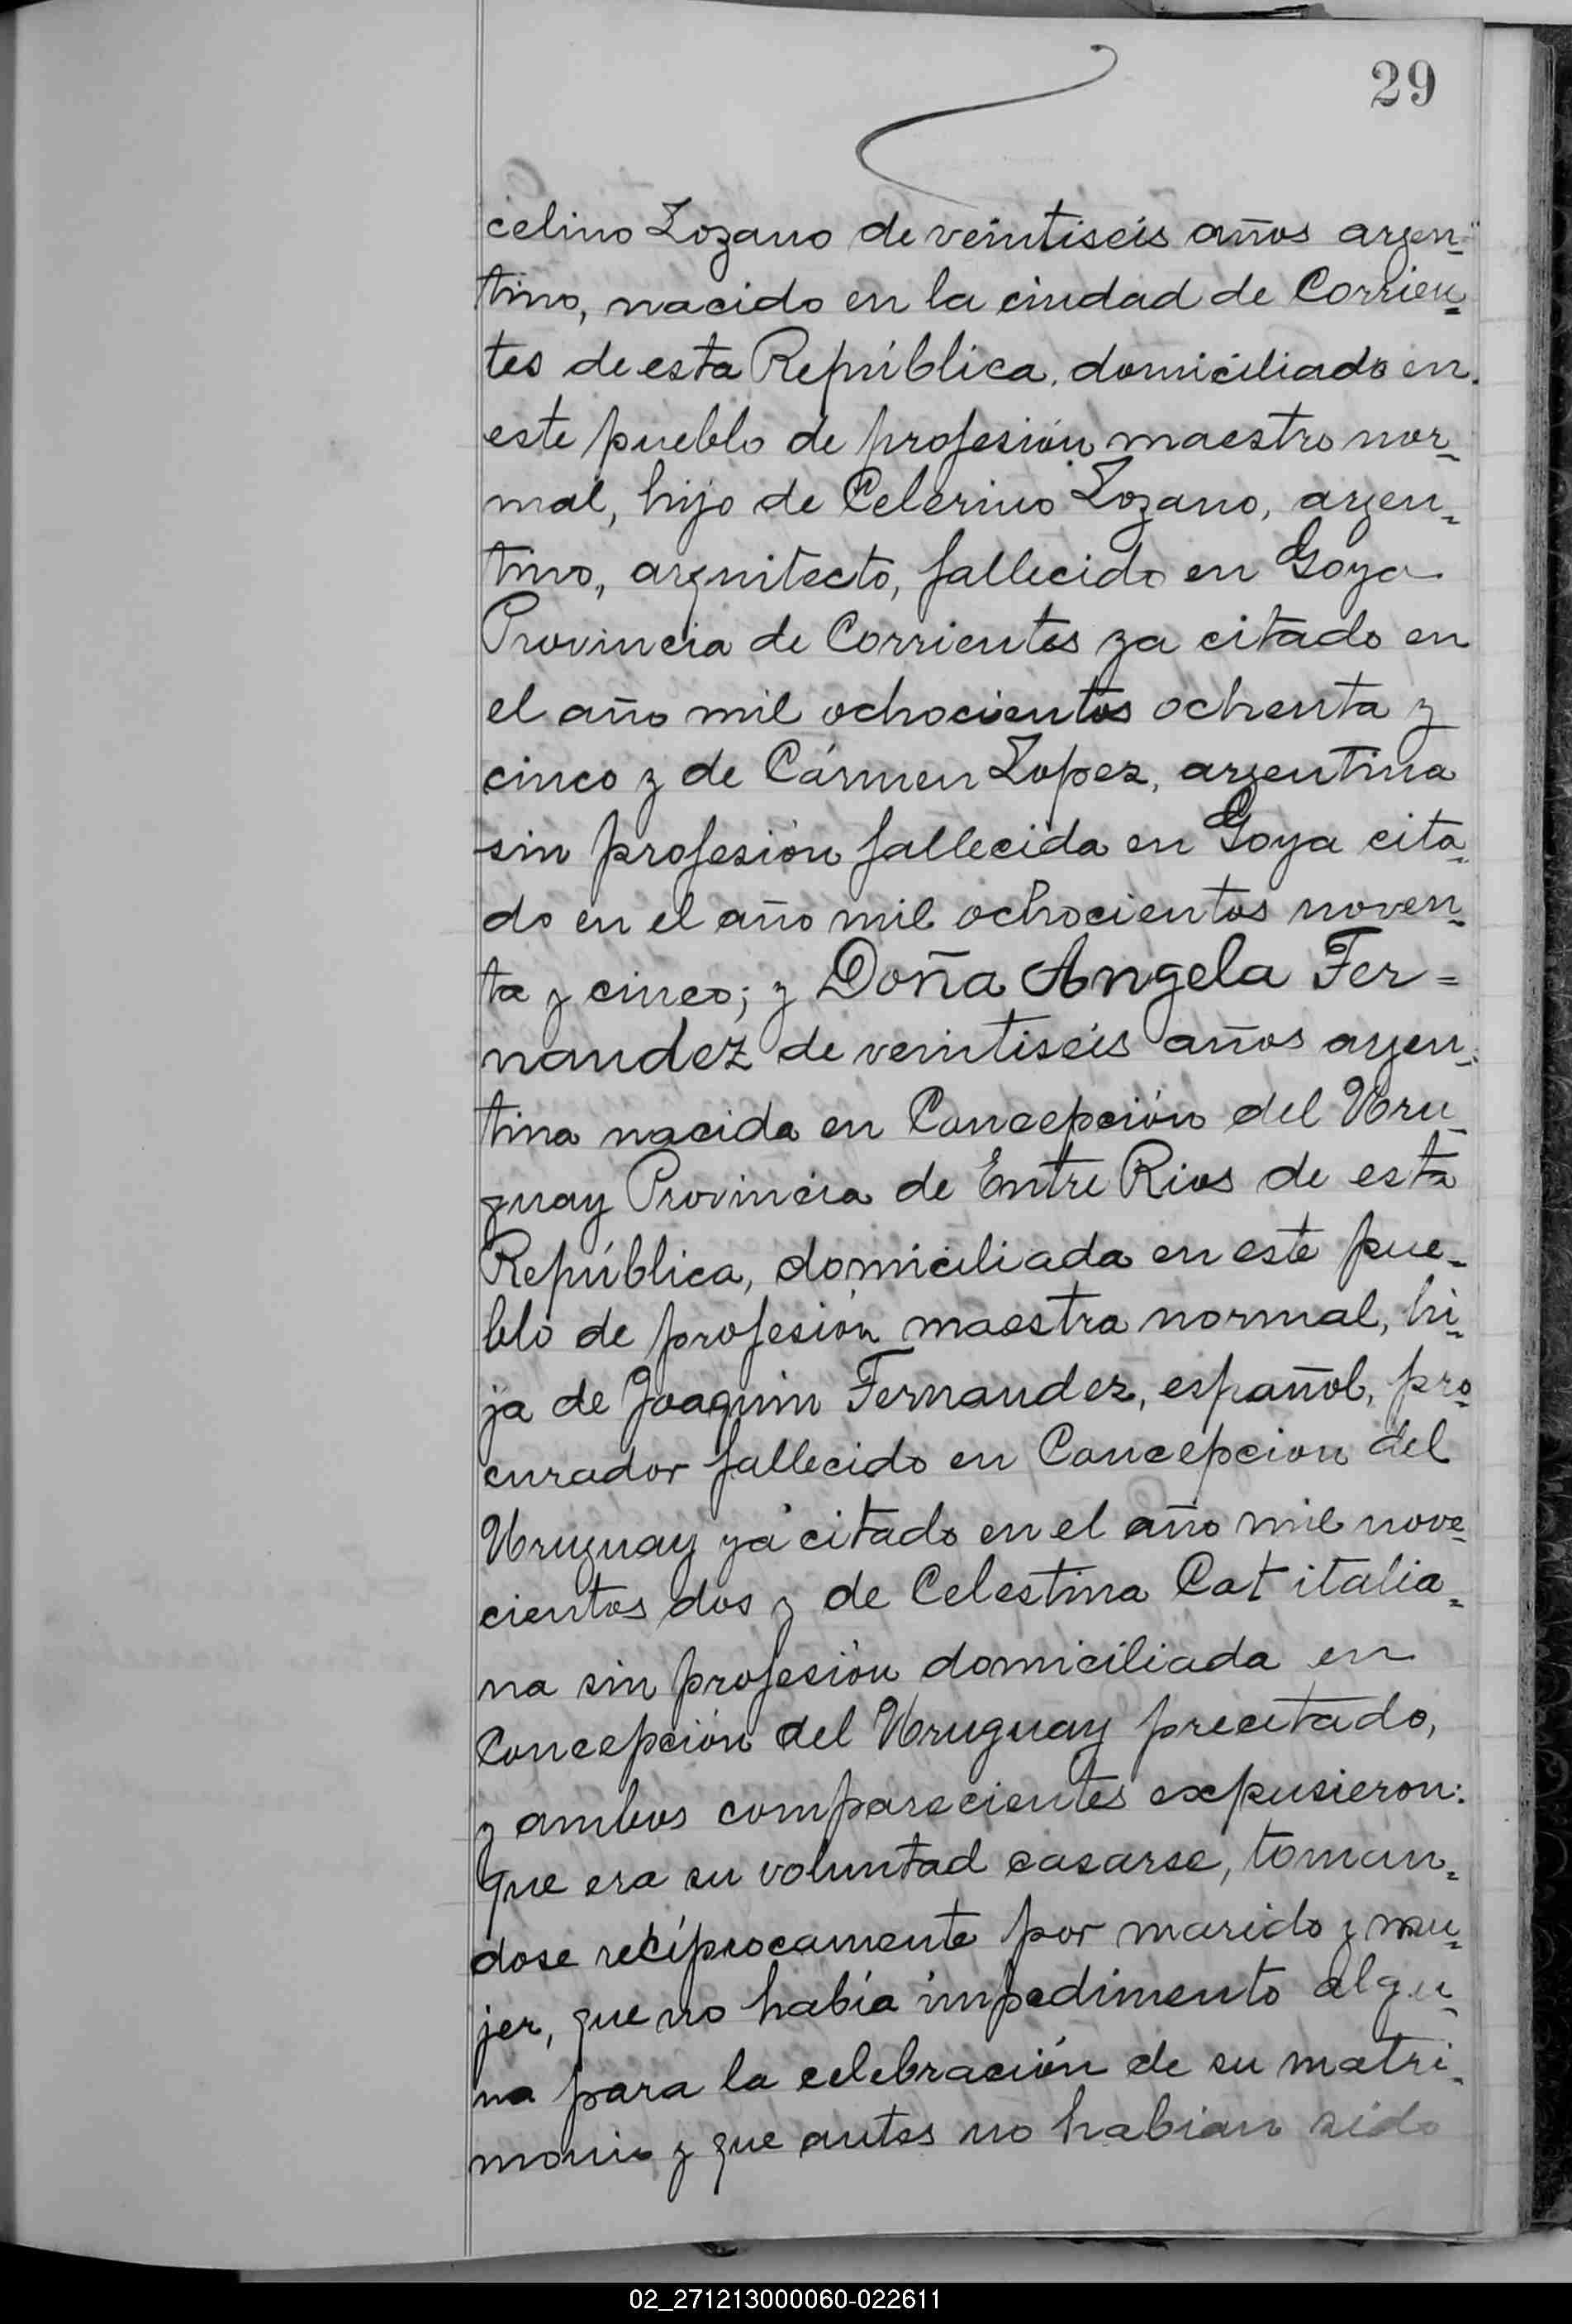 29
celino Lozano de veintiseis años argen=
tino, nacido en la ciudad de Corrien=
tes de esta República, domiciliado en
este pueblo de profesión maestro nor=
mal, hijo de Celerino Lozano, argen=
tino, arquitecto, fallecido en Goya
Provincia de Corrientes ya citado en
el año mil ochocientos ochenta y
cinco y de Cármen Lopez, argentina
sin profesión fallecida en Goya cita=
do en el año mil ochocientos noven=
ta y cinco; y Doña Angela Fer=
nandez de veintiseis años argen=
tina nacida en Concepción del Uru=
guay Provincia de Entre Rios de esta
República, domiciliada en este pue=
blo de profesión maestra normal, hi=
ja de Joaquin Fernandez, español, pro=
curador fallecido en Concepcion del
Uruguay ya citado en el año mil nove=
cientos dos y de Celestina Cat italia=
na sin profesión domiciliada en
Concepción del Uruguay precitado,
y ambos comparecientes expusieron:
Que era su voluntad casarse, tomán=
dose recíprocamente por marido y mu=
jer, que no había impedimento algu=
no para la celebración de su matri=
monio y que antes no habian sido
02_271213000060-022611